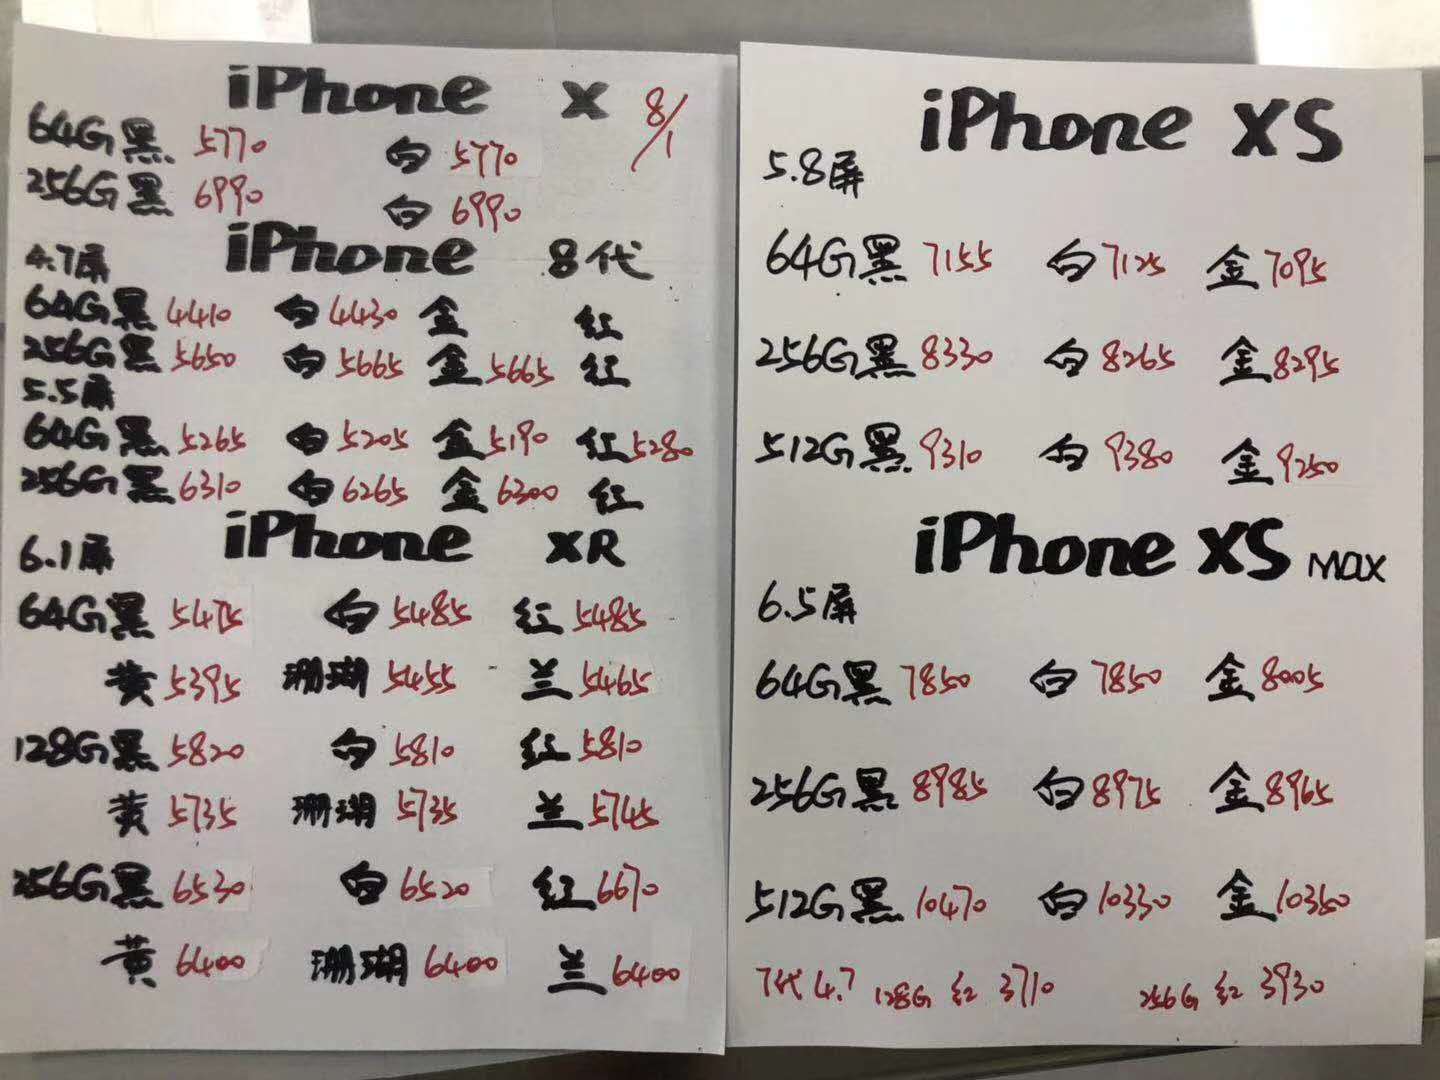 iPhone X 8/1
64G黑 5770 白 5770
256G黑 6990 白 6990
iPhone 8代
4.7屏
64G黑 4410 白 4430 金 红
256G黑 5650 白 5665 金 5665 红
5.5屏
64G黑 5265 白 5205 金 5190 红 5280
256G黑 6310 白 6265 金 6300 红
iPhone XR
6.1屏
64G黑 5475 白 5485 红 5485
黄 5395 珊瑚 5455 兰 5465
128G黑 5820 白 5810 红 5810
黄 5735 珊瑚 5735 兰 5745
256G黑 6530 白 6520 红 6670
黄 6400 珊瑚 6400 兰 6400
iPhone XS
5.8屏
64G黑 7155 白 7125 金 7095
256G黑 8330 白 8265 金 8295
512G黑 9310 白 9380 金 9250
iPhone XS MAX
6.5屏
64G黑 7850 白 7850 金 8005
256G黑 8985 白 8975 金 8965
512G黑 10470 白 10330 金 10360
7代 4.7 128G 红 3710 256G 红 3930